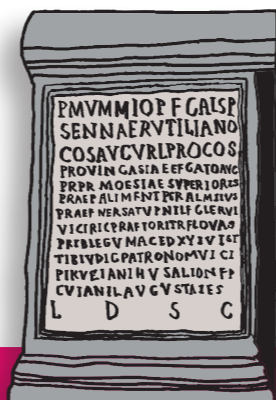 PMVMMIOP F GALSP
SENNAERVTILIANO
COSAVGVRLPROCOS
PROVINGASIAEEFGATOAVG
PRPR MOESIAE SVPERIORIS
PRAEPALIMENTPERALMILVS
PRAEF VERSATVPNILFGLERVI
VICIRICPRAFTORITRFLOVAS
PRIBLEGV MACEDXVIVIST
TIBIVDIGPATRONOMVICI
PIRVEIANIHVSALIONFP
CVIANILAVGVSTAIES
L D S C